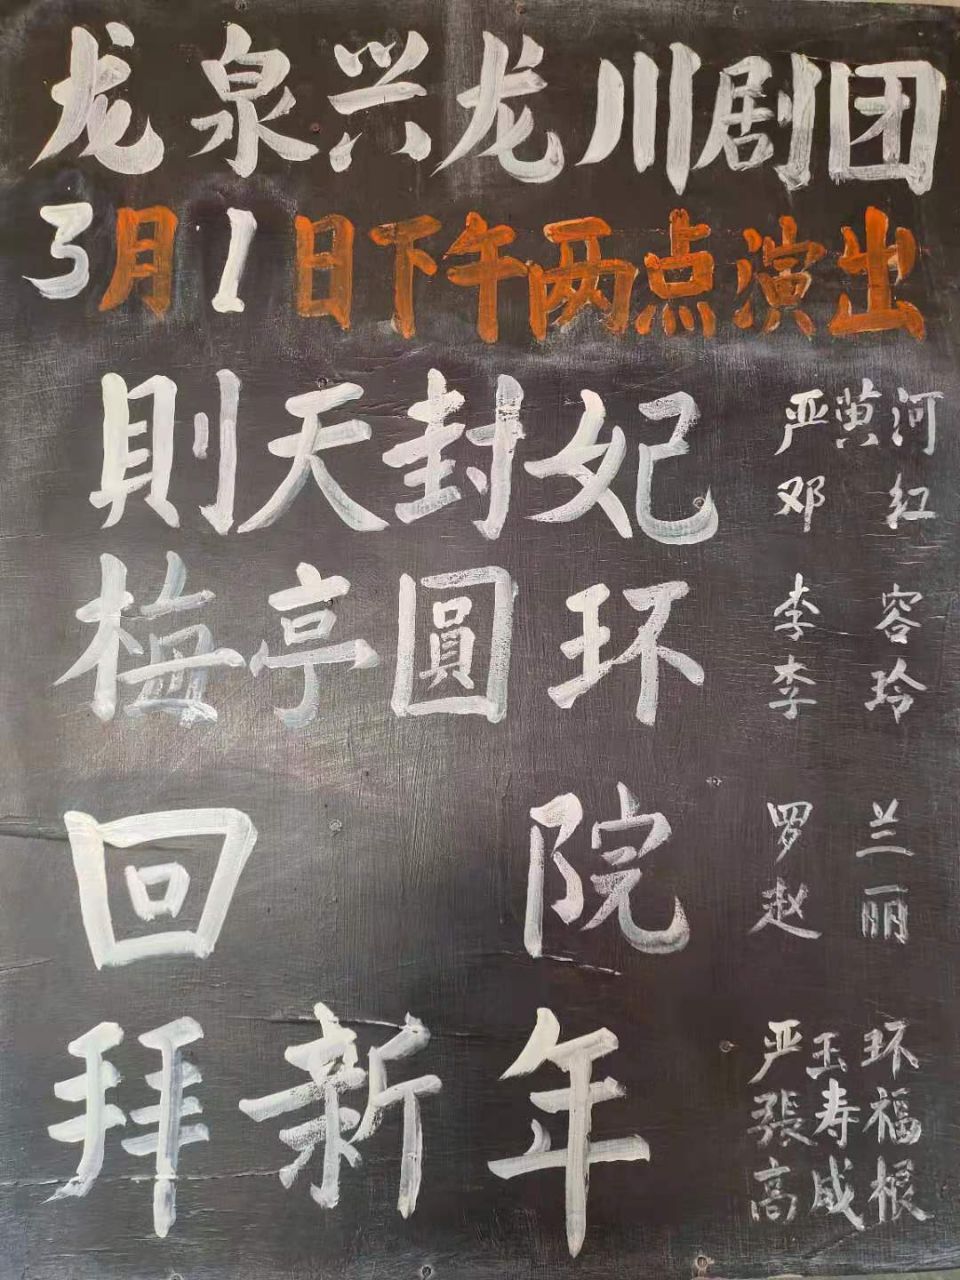 龙泉兴龙川剧团
3月1日下午两点演出
則天封妃 严黄河 邓红
梅亭圓环 李容 李玲
回院 罗兰 赵丽
拜新年 严玉环 張寿福 高成根